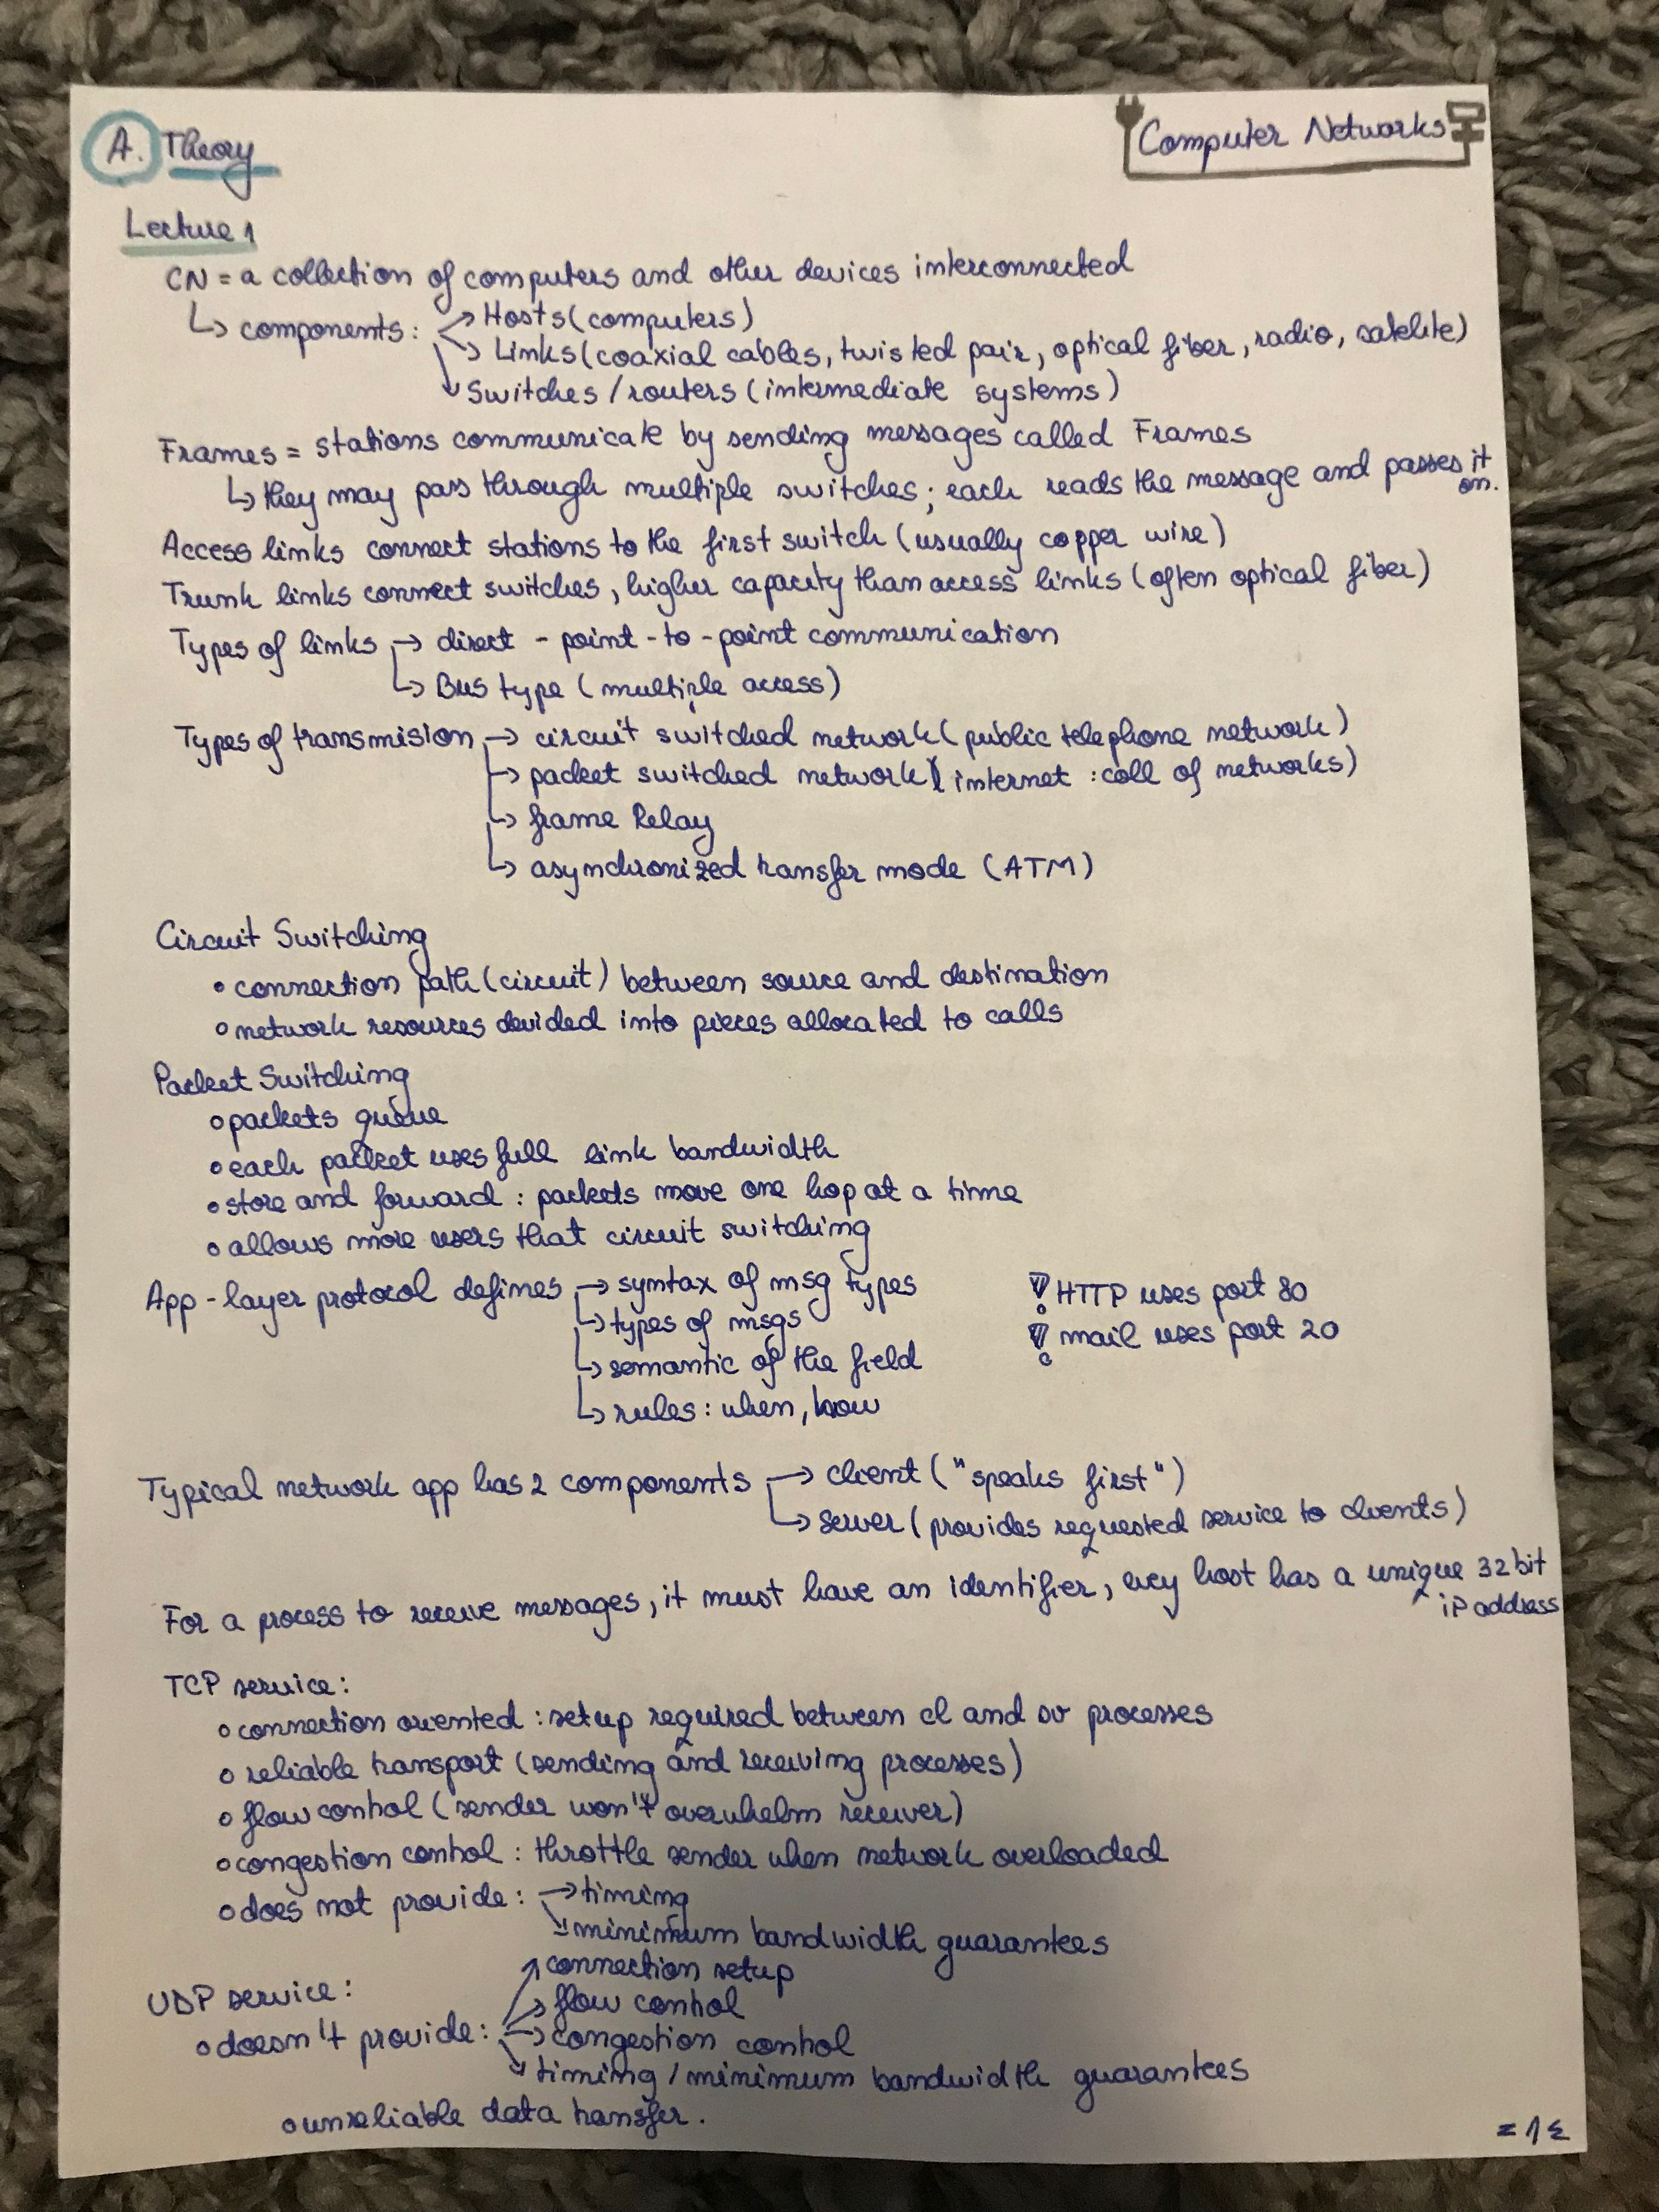 A. Theory
Computer Networks
Lecture 1
CN = a collection of computers and other devices interconnected
↳ components: → Hosts (computers)
→ Links (coaxial cables, twisted pair, optical fiber, radio, satelite)
↘ Switches / routers (intermediate systems)
Frames = stations communicate by sending messages called Frames
↳ they may pass through multiple switches; each reads the message and passes it
on.
Access links connect stations to the first switch (usually copper wire)
Trunk links connect switches, higher capacity than access links (often optical fiber)
Types of links → direct - point-to-point communication
↳ Bus type (multiple access)
Types of transmision → circuit switched network (public telephone network)
↳ packet switched network (internet : coll of networks)
↳ frame Relay
↳ asynchronized transfer mode (ATM)
Circuit Switching
• connection path (circuit) between source and destination
• network resources devided into pieces allocated to calls
Packet Switching
• packets queue
• each packet uses full link bandwidth
• store and forward : packets move one hop at a time
• allows more users that circuit switching
App-layer protocol defines → syntax of msg types
! HTTP uses port 80
↳ types of msgs
! mail uses port 20
↳ semantic of the field
↳ rules: when, how
Typical network app has 2 components → client ("speaks first")
↳ server (provides requested service to clients)
For a process to receive messages, it must have an identifier, evey host has a unique 32 bit
iP address
TCP service:
• connection oriented : setup required between cl and sv processes
• reliable transport (sending and receiving processes)
• flow control (sender won't overwhelm receiver)
• congestion control : throttle sender when network overloaded
• does not provide: → timing
↘ minimum bandwidth guarantees
UDP service:
• doesn't provide: ↗ connection setup
→ flow control
→ congestion control
↘ timing / minimum bandwidth guarantees
• unreliable data transfer.
≈ 1 ≤